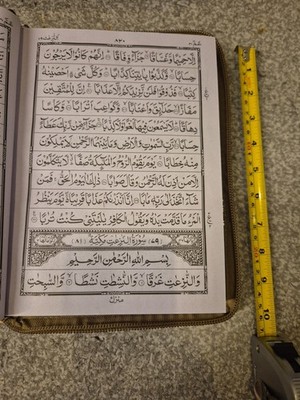 عَمَّ ٣٠
اِلَّا حَمِيْمًا وَّغَسَّاقًا جَزَآءً وِّفَاقًا اِنَّهُمْ كَانُوْا لَا يَرْجُوْنَ
حِسَابًا وَّكَذَّبُوْا بِاٰيٰتِنَا كِذَّابًا وَكُلَّ شَيْءٍ اَحْصَيْنٰهُ
كِتٰبًا فَذُوْقُوْا فَلَنْ نَّزِيْدَكُمْ اِلَّا عَذَابًا اِنَّ لِلْمُتَّقِيْنَ
مَفَازًا حَدَآئِقَ وَاَعْنَابًا وَّكَوَاعِبَ اَتْرَابًا وَّكَاْسًا
دِهَاقًا لَا يَسْمَعُوْنَ فِيْهَا لَغْوًا وَّلَا كِذّٰبًا جَزَآءً مِّنْ رَّبِّكَ عَطَآءً
حِسَابًا رَّبِّ السَّمٰوٰتِ وَالْاَرْضِ وَمَا بَيْنَهُمَا الرَّحْمٰنِ لَا يَمْلِكُوْنَ
مِنْهُ خِطَابًا يَوْمَ يَقُوْمُ الرُّوْحُ وَالْمَلٰٓئِكَةُ صَفًّا لَّا يَتَكَلَّمُوْنَ
اِلَّا مَنْ اَذِنَ لَهُ الرَّحْمٰنُ وَقَالَ صَوَابًا ذٰلِكَ الْيَوْمُ الْحَقُّ فَمَنْ
شَآءَ اتَّخَذَ اِلٰى رَبِّهٖ مَاٰبًا اِنَّآ اَنْذَرْنٰكُمْ عَذَابًا قَرِيْبًا يَّوْمَ يَنْظُرُ
الْمَرْءُ مَا قَدَّمَتْ يَدٰهُ وَيَقُوْلُ الْكٰفِرُ يٰلَيْتَنِيْ كُنْتُ تُرٰبًا
(٧٩) سُوْرَةُ النّٰزِعٰتِ مَكِّيَّةٌ (٨١)
بِسْمِ اللّٰهِ الرَّحْمٰنِ الرَّحِيْمِ
وَالنّٰزِعٰتِ غَرْقًا وَّالنّٰشِطٰتِ نَشْطًا وَّالسّٰبِحٰتِ
منزل